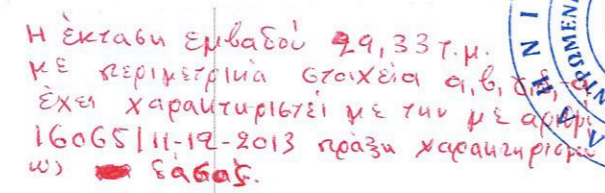 Η έκταση εμβαδού 29,33 τ.μ.
με περιμετρικά στοιχεία α, β, γ, δ, α
έχει χαρακτηριστεί με την με αριθμ
16065/11-12-2013 πράξη χαρακτηρισμού
ως δάσος.